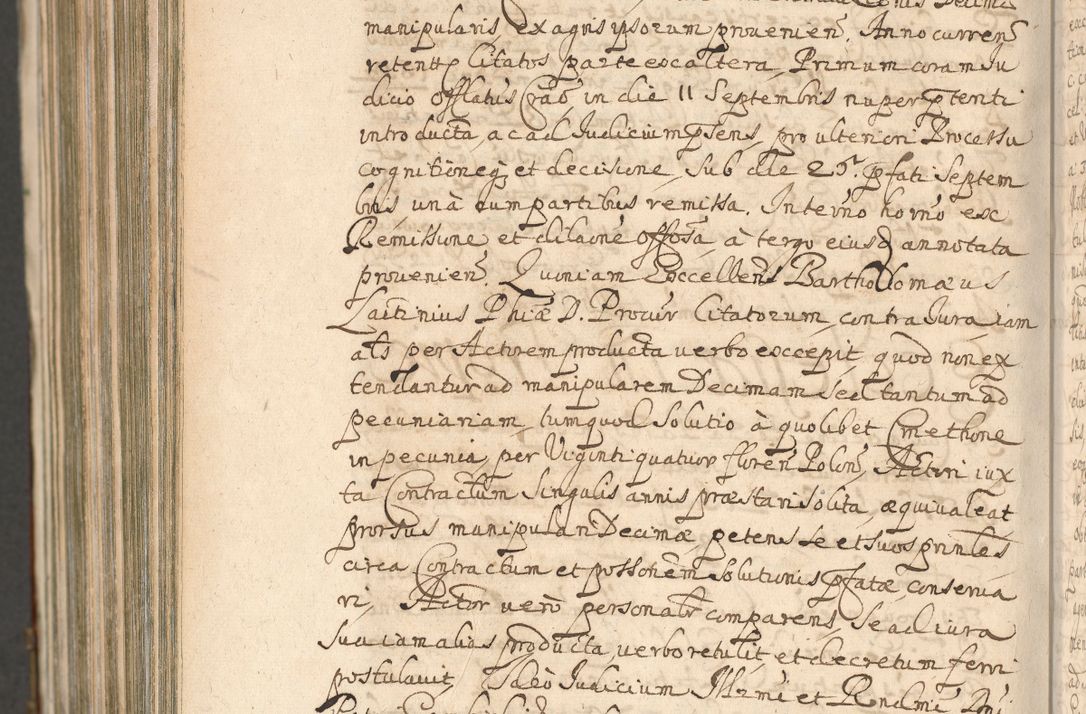 manipularis, ex agris ipsorum prouenien. Anno curren
retent Citatos parte ex altera, Primum coram Ju
dicio Offlatus Crac in die 11 Septembris nuper ptenti
introducta, ac ad Judicium psens, pro ulteriori Processu
cognitioneq et decisione, sub die 25. pfati Septem
bris, unà cum partibus remissa. In termo horno ex
Remissione et dilaone offosa à tergo eiusd annotata
prouenien. Quoniam Excellens Bartholomæus
Laitinius Phiæ D. Procur Citatorum, contra Jura iam
als per Actorem producta uerbo excepit, quod non ex
tendantur ad manipularem Decimam sed tantum ad
pecuniariam, tumquod solutio à quolibet Cmethone
in pecunia, per Viginti quatuor floren Polon, Actori iux
ta Contractum singulis annis præstari solita, æquiualeat
prorsus manipulari Decimæ, petens se et suos prinles
circa Contractum et possonem solutionis pfatæ conserua
ri, Actor uero personalr comparens, se ad iura
sua iam alias producta, uerbo retulit, et decretum ferri
postulauit, Ideò Judicium Illrmi et Rndmi Dni